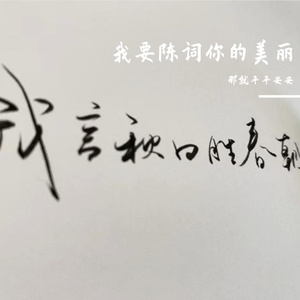 我要陈词你的美丽
那就平平安安
我言秋日胜春朝